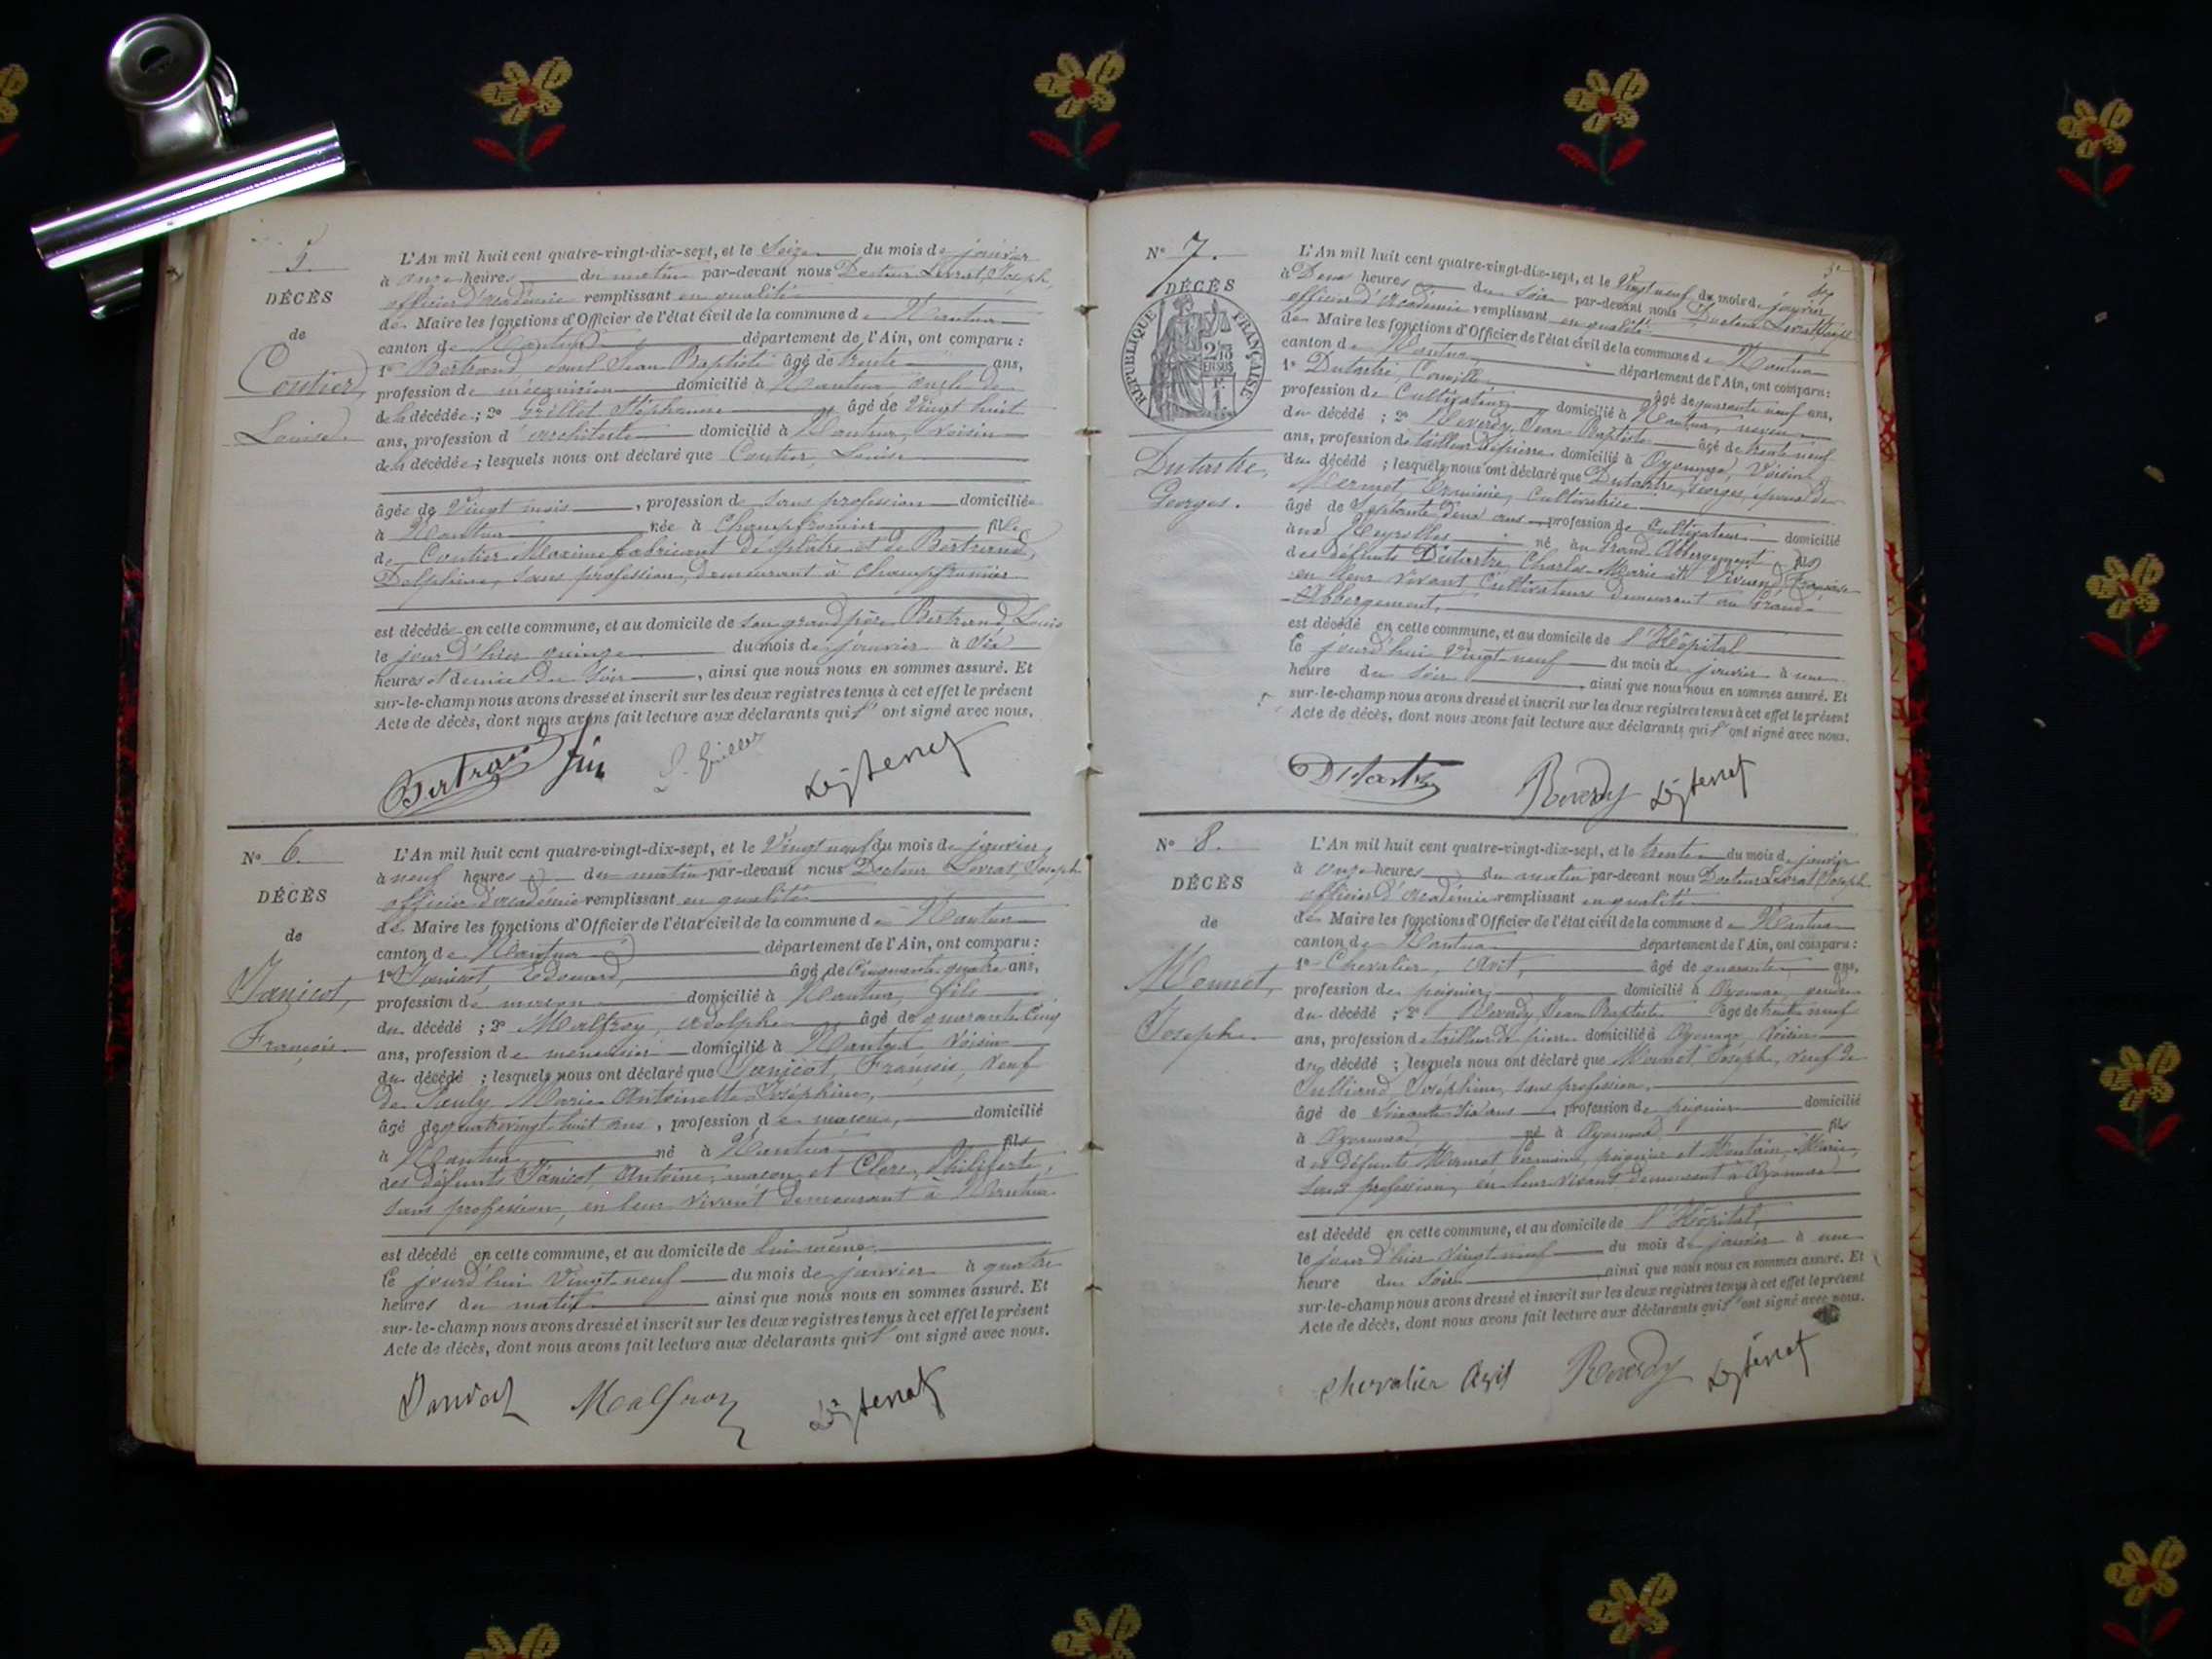 5.
DÉCÈS
de
Coutier,
Louise.
L'An mil huit cent quatre-vingt-dix-sept, et le Seize du mois de janvier
à onze heures du matin par-devant nous Docteur Levrat, Joseph,
officier d'académie remplissant en qualité
de Maire les fonctions d'Officier de l'état civil de la commune de Nantua
canton de Nantua département de l'Ain, ont comparu :
1º Bertrand, Jean Baptiste âgé de trente ans,
profession de mécanicien domicilié à Nantua oncle de
de la décédée ; 2º Grillet Stéphane âgé de Vingt huit
ans, profession d'architecte domicilié à Nantua, voisin
de la décédée ; lesquels nous ont déclaré que Coutier, Louise
âgée de Vingt mois, profession de sans profession domiciliée
à Nantua née à Champfromier fille
de Coutier Maxime fabricant de plâtre et de Bertrand,
Delphine, sans profession, demeurant à Champfromier
est décédée en cette commune, et au domicile de son grand père Bertrand Louis
le jour d'hier quinze du mois de janvier à six
heures et demie du Soir, ainsi que nous nous en sommes assuré. Et
sur-le-champ nous avons dressé et inscrit sur les deux registres tenus à cet effet le présent
Acte de décès, dont nous avons fait lecture aux déclarants qui l'ont signé avec nous.
Bertrand
Nº 6.
DÉCÈS
de
Janicot,
François.
L'An mil huit cent quatre-vingt-dix-sept, et le Vingt neuf du mois de janvier
à neuf heures du matin par-devant nous Docteur Levrat, Joseph
officier d'académie remplissant en qualité
de Maire les fonctions d'Officier de l'état civil de la commune de Nantua
canton de Nantua département de l'Ain, ont comparu :
1º Janicot, Edouard, âgé de Cinquante quatre ans,
profession de maçon domicilié à Nantua, fils
du décédé ; 2º Malfroy, Adolphe âgé de quarante cinq
ans, profession de menuisier domicilié à Nantua voisin
du décédé ; lesquels nous ont déclaré que Janicot, François, veuf
de Marie Antoinette Joséphine,
âgé de quatrevingt huit ans, profession de maçon, domicilié
à Nantua né à Nantua fils
des défunts Janicot, Antoine, maçon et Clerc, Philiberte,
sans profession, en leur vivant demeurant à Nantua
est décédé en cette commune, et au domicile de lui même
le jourd'hui Vingt neuf du mois de janvier à quatre
heures du matin ainsi que nous nous en sommes assuré. Et
sur-le-champ nous avons dressé et inscrit sur les deux registres tenus à cet effet le présent
Acte de décès, dont nous avons fait lecture aux déclarants qui l'ont signé avec nous.
Janicot Malfroy
Nº 7.
DÉCÈS
RÉPUBLIQUE FRANÇAISE
Dutartre,
Georges.
L'An mil huit cent quatre-vingt-dix-sept, et le Vingt neuf du mois de janvier
à Deux heures du Soir par-devant nous Docteur Levrat Joseph
officier d'Académie remplissant en qualité
de Maire les fonctions d'Officier de l'état civil de la commune de Nantua
canton de Nantua département de l'Ain, ont comparu :
1º Dutartre, Camille âgé de quarante neuf ans,
profession de Cultivateur domicilié à Nantua, neveu
du décédé ; 2º Reverdy, Jean Baptiste âgé de trente neuf
ans, profession de tailleur de pierre domicilié à Oyonnax, Voisin
du décédé ; lesquels nous ont déclaré que Dutartre, Georges, époux de
Mermet, cultivatrice.
âgé de Septante deux ans profession de Cultivateur domicilié
à né au Grand Abbergement fils
des défunts Dutartre, Charles Marie et Françoise
en leur vivant, Cultivateurs demeurant au Grand-
Abbergement,
est décédé en cette commune, et au domicile de l'Hôpital
le jourd'hui Vingt neuf du mois de janvier à une
heure du Soir ainsi que nous nous en sommes assuré. Et
sur-le-champ nous avons dressé et inscrit sur les deux registres tenus à cet effet le présent
Acte de décès, dont nous avons fait lecture aux déclarants qui l'ont signé avec nous.
Dutartre Reverdy
Nº 8.
DÉCÈS
de
Monnet,
Joseph.
L'An mil huit cent quatre-vingt-dix-sept, et le trente du mois de janvier
à onze heures du matin par-devant nous Docteur Levrat, Joseph
officier d'académie remplissant en qualité
de Maire les fonctions d'Officier de l'état civil de la commune de Nantua
canton de Nantua département de l'Ain, ont comparu :
1º Chevalier, Avit, âgé de quarante ans,
profession de peignier, domicilié à Oyonnax, gendre
du décédé ; 2º Reverdy Jean Baptiste âgé de trente neuf
ans, profession de tailleur de pierre domicilié à Oyonnax, Voisin
du décédé ; lesquels nous ont déclaré que Monnet, Joseph, veuf de
Julliard, Joséphine, sans profession,
âgé de soixante six ans profession de peignier domicilié
à Oyonnax, né à Oyonnax fils
des défunts Monnet Germain, peignier et Marie,
sans profession, en leur vivant demeurant à Oyonnax
est décédé en cette commune, et au domicile de l'Hôpital,
le jour d'hier vingt neuf du mois de janvier à une
heure du Soir ainsi que nous nous en sommes assuré. Et
sur-le-champ nous avons dressé et inscrit sur les deux registres tenus à cet effet le présent
Acte de décès, dont nous avons fait lecture aux déclarants qui l'ont signé avec nous.
Chevalier Avit Reverdy